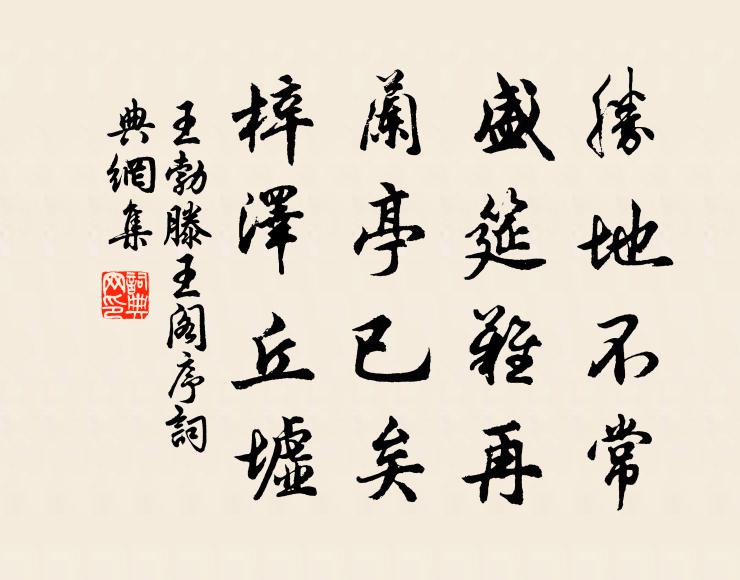 勝地不常
盛筵難再
蘭亭已矣
梓澤丘墟
王勃滕王阁序詞
典網集
詞典网印